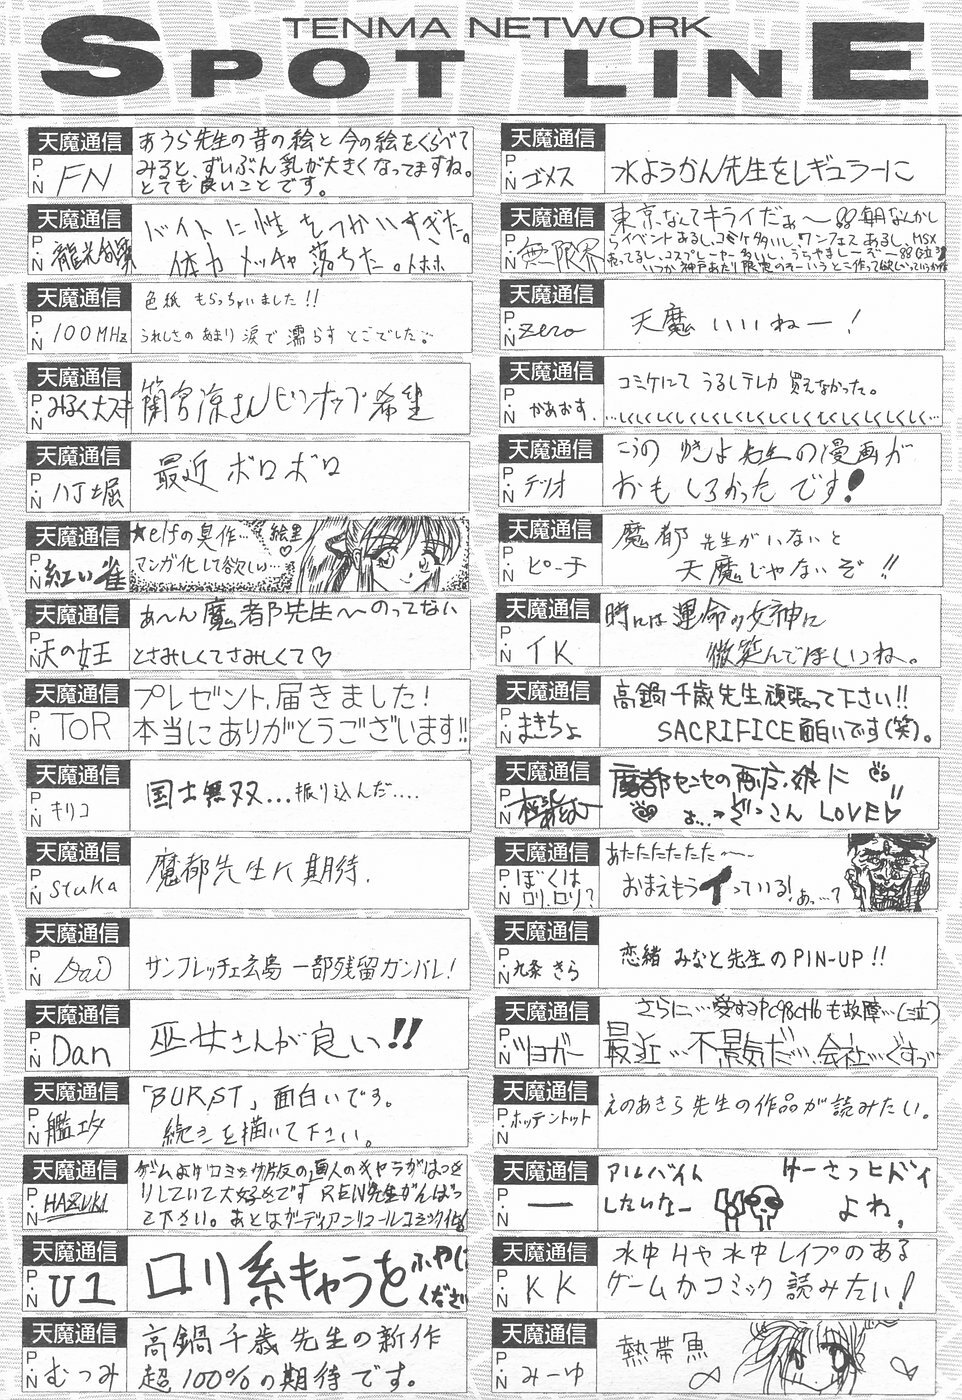 TENMA NETWORK
SPOT LINE
天魔通信
P・N FN
あうら先生の昔の絵と今の絵をくらべて
みると、ずいぶん乳が大きくなってますね。
とても良いことです。
天魔通信
P・N
バイトに性をつかいすぎた。
体力メッチャ落ちた。トホホ
天魔通信
P・N 100MHz
色紙もらっちゃいました!!
うれしさのあまり涙で濡らすとこでした
天魔通信
P・N みるく大スキ
蘭宮涼さんピンナップ希望
天魔通信
P・N 八丁堀
最近ボロボロ
天魔通信
P・N 紅い雀
★elfの臭作… 絵里♡
マンガ化して欲しい…
天魔通信
P・N 天の女王
あ〜ん魔都先生〜〜のってない
とさみしくてさみしくて♡
天魔通信
P・N TOR
プレゼント、届きました!
本当にありがとうございます!!
天魔通信
P・N キリコ
国士無双…振り込んだ‥‥
天魔通信
P・N stuka
魔都先生に期待.
天魔通信
P・N
サンフレッチェ広島一部残留ガンバレ!
天魔通信
P・N Dan
巫女さんが良い!!
天魔通信
P・N
「BURST」面白いです。
続きを描いて下さい。
天魔通信
P・N HAZUKI
ゲームよりコミック版の画人のキャラがはっき
りしていて大好きです REN先生がんばっ
て下さい。あとはガーディアンリコールコミック化
天魔通信
P・N U1
ロリ系キャラをふやして
ください
天魔通信
P・N むつみ
高鍋千歳先生の新作
超100%の期待です。
天魔通信
P・N ゴメス
水ようかん先生をレギュラーに
天魔通信
P・N 無限界
東京なんてキライだぁ〜 毎日なんかし
らイベントあるし、コミケ多いし、ワンフェスあるし、MSX
売ってるし、コスプレーヤー多いし、うらやましーぞー
いつか神戸あたり限定のそーいうとこ作って欲しい
天魔通信
P・N zero
天魔いいねー!
天魔通信
P・N かあおす.
コミケにてうるしテレカ買えなかった。
…しくしくしくしくしくしくしくしくしくしくしく…
天魔通信
P・N テリオ
こうのゆきよ先生の漫画が
おもしろかったです!
天魔通信
P・N ピーチ
魔都先生がいないと
天魔じゃないぞ!!
天魔通信
P・N イK
時には運命の女神に
微笑んでほしいね。
天魔通信
P・N まきちょ
高鍋千歳先生頑張って下さい!!
SACRIFICE面白いです(笑)。
天魔通信
P・N
魔都センセの
ぞっこん LOVE♡
天魔通信
P・N ぼくはロリ、ロリ?
あたたたたたた〜〜
おまえもうイっている! あ…っ…て
天魔通信
P・N 九条きら
恋緒みなと先生のPIN-UP!!
天魔通信
P・N ツヨガー
さらに…愛するPC98CH6も故障…(泣)
最近…不景気だ…会社…ぐすっ
天魔通信
P・N ホッテントット
えのあきら先生の作品が読みたい。
天魔通信
P・N 一
アルバイト けーさつヒドイ
したいなー よね。
天魔通信
P・N KK
水中Hや水中レイプのある
ゲームかコミック読みたい!
天魔通信
P・N みーゆ
熱帯魚